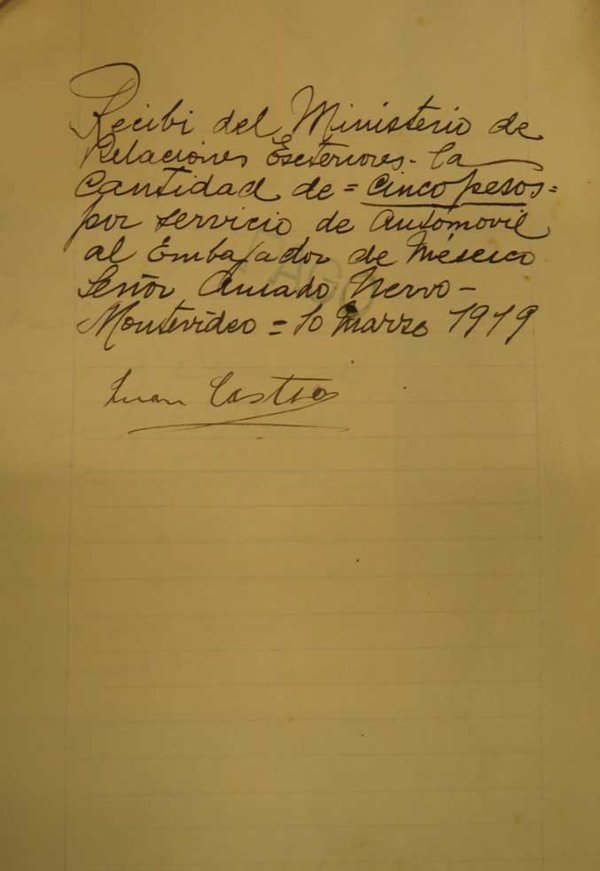 Recibi del Ministerio de
Relaciones Esceteriores - la
Cantidad de = Cinco pesos =
por servicio de Automovil
al Embajador de Méscico
Señor Amado Nervo -
Montevideo = 10 Marzo 1919
PAGO
Juan Castro